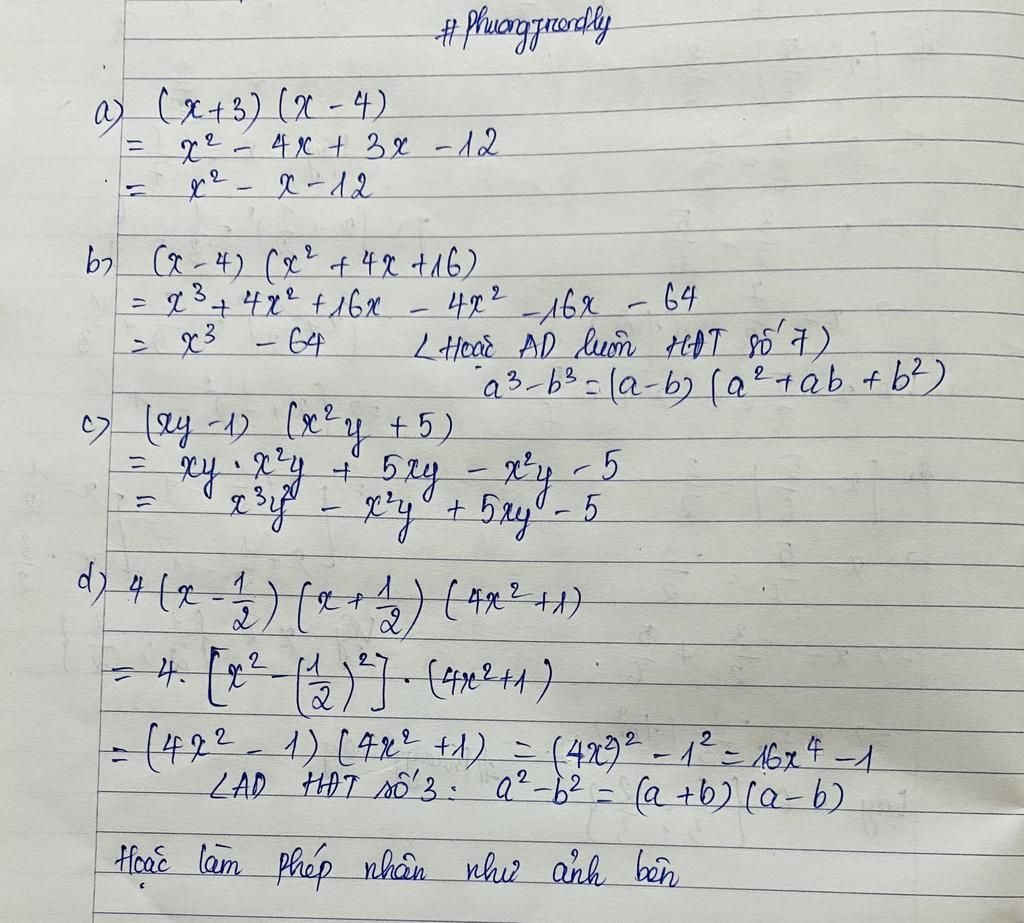 #Phuongfriendly
a) (x+3) (x - 4)
= x² - 4x + 3x - 12
= x² - x - 12
b) (x - 4) (x² + 4x + 16)
= x³ + 4x² + 16x - 4x² - 16x - 64
= x³ - 64 <Hoặc AD luôn HĐT số 7)
a³ - b³ = (a - b) (a² + ab + b²)
c) (xy - 1) (x²y + 5)
= xy . x²y + 5xy - x²y - 5
= x³y² - x²y + 5xy - 5
d) 4 (x - 1/2) (x + 1/2) (4x² + 1)
= 4. [x² - (1/2)²] . (4x² + 1)
= (4x² - 1) (4x² + 1) = (4x²)² - 1² = 16x⁴ - 1
<AD HĐT số 3: a² - b² = (a + b) (a - b)
Hoặc làm phép nhân như ảnh bên